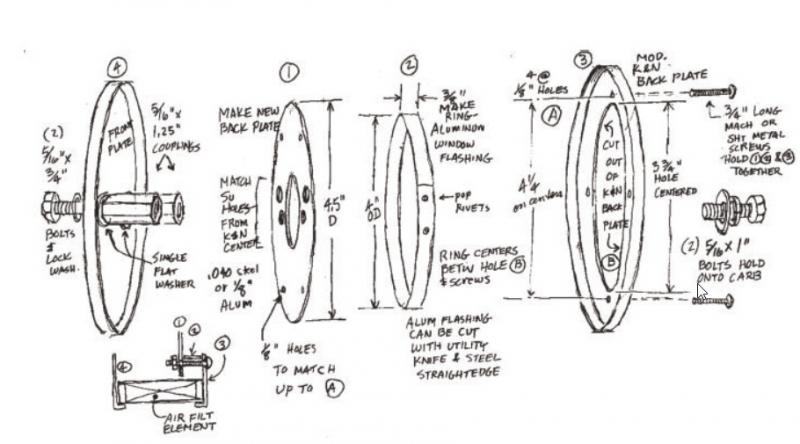 4
(2)
5/16" X
3/4"
BOLTS
&
LOCK
WASH.
FRONT
PLATE
5/16" X
1.25"
COUPLINGS
SINGLE
FLAT
WASHER
1
MAKE NEW
BACK PLATE
MATCH
SU
HOLES
FROM
K&N
CENTER
.040 stel
or 1/8"
ALUM
4.5"
D
1/8" HOLES
TO MATCH
UP TO A
2
3/8"
MAKE
RING-
ALUMINOW
WINDOW
FLASHING
4"
OD
POP
RIVETS
RING CENTERS
BETW HOLE B
& SCREWS
ALUM FLASHING
CAN BE CUT
WITH UTILITY
KNIFE & STEEL
STRAIGHTEDGE
3
4 @
1/8" HOLES
A
MOD.
K&N
BACK PLATE
4 1/4
on centers
CUT
OUT
OF
K&N
BACK
PLATE
B
3 3/4"
HOLE
CENTERED
3/4" LONG
MACH OR
SHT METAL
SCREWS
HOLD 1, 2 & 3
TOGETHER
(2) 5/16 X 1"
BOLTS HOLD
ONTO CARB
1
2
3
4
AIR FILT
ELEMENT